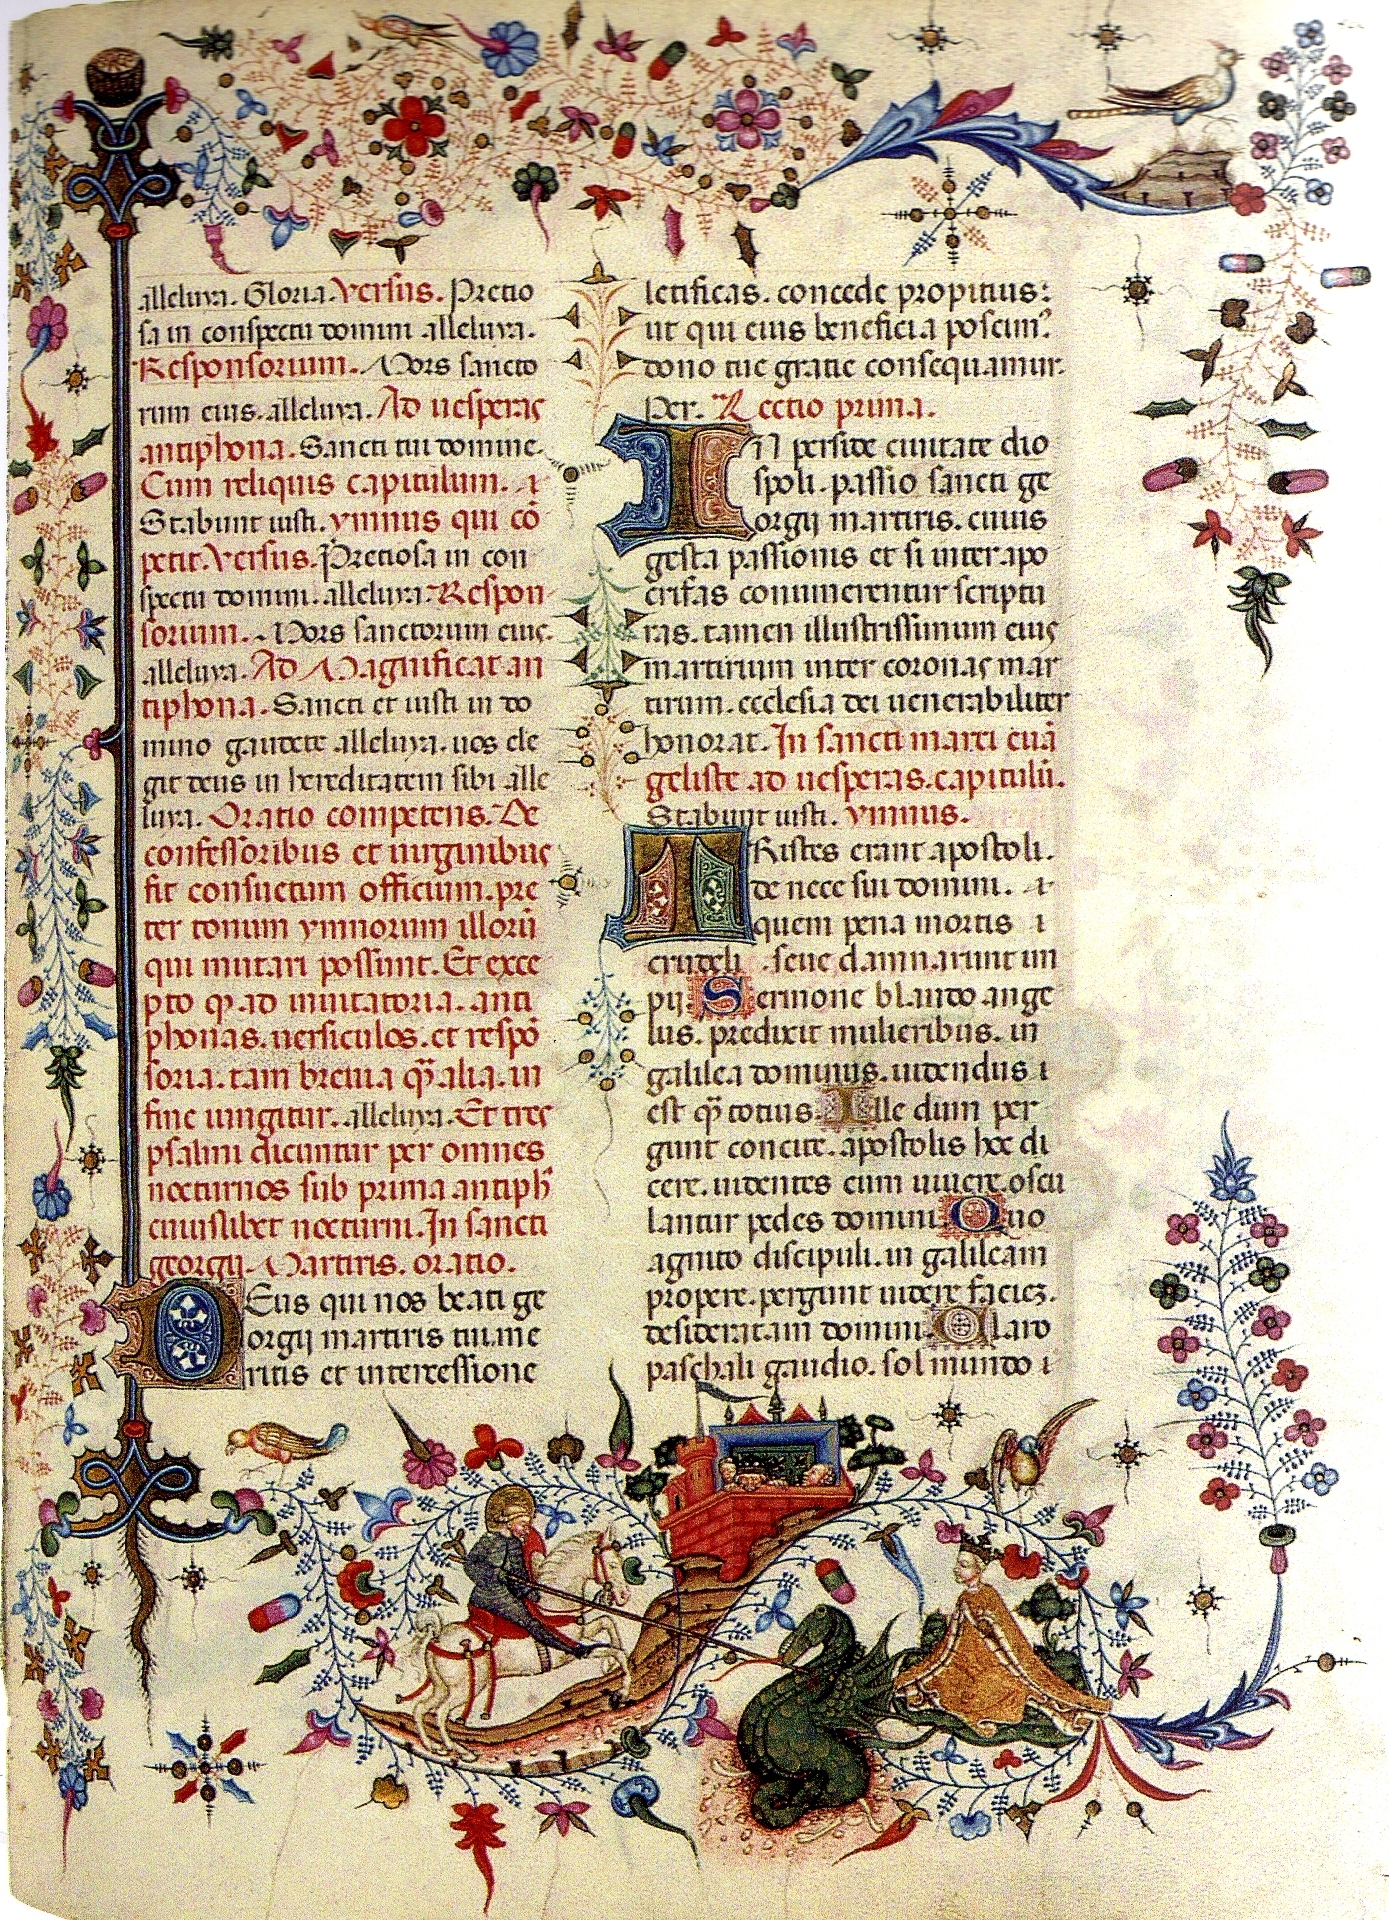 alleluya. Gloria. Versus. Pretio
sa in conspectu domini alleluya.
Responsorium. Mors sancto
rum eius. alleluya. Ad uesperas
antiphona. Sancti tui domine.
Cum reliquis capitulum.
Stabunt iusti. ymnus qui cō
petit. Versus. Pretiosa in con
spectu domini. alleluya. Respon
sorium. Mors sanctorum eius.
alleluya. Ad Magnificat an
tiphona. Sancti et iusti in do
mino gaudete alleluya. uos ele
git deus in hereditatem sibi alle
luya. Oratio competens. De
confessoribus et uirginibus
fit consuetum officium. pre
ter tonum ymnorum illorū
qui mutari possunt. Et exce
pto qꝫ ad inuitatoria. anti
phonas. uersiculos. et respō
soria. tam breuia qᷓ alia. in
fine iungitur. alleluya. Et tres
psalmi dicuntur per omnes
nocturnos sub prima antiph
cuiuslibet nocturni. In sancti
georgii Martiris. oratio.
DEus qui nos beati ge
orgij martiris tui me
ritis et intercessione
letificas. concede propitius:
ut qui eius beneficia poscimꝰ
dono tue gratie consequamur.
Per. Lectio prima.
IN perside ciuitate dio
spoli. passio sancti ge
orgij martiris. cuius
gesta passionis et si inter apo
crifas connumerentur scriptu
ras. tamen illustrissimum eius
martirium inter coronas mar
tirum. ecclesia dei uenerabiliter
honorat. In sancti marci euā
geliste ad uesperas. capitulū.
Stabunt iusti. ymnus.
TRistes erant apostoli.
de nece sui domini.
quem pena mortis
crudeli seue damnarunt im
pij. Sermone blando ange
lus. predixit mulieribus. in
galilea dominus. uidendus
est qᷓ totius. Ille dum per
gunt concite. apostolis hec di
cere. uidentes eum uiuere. oscu
lantur pedes domini. Quo
agnito discipuli. in galileam
propere. pergunt uidere faciem.
desideratam domini. Claro
paschali gaudio. sol mundo